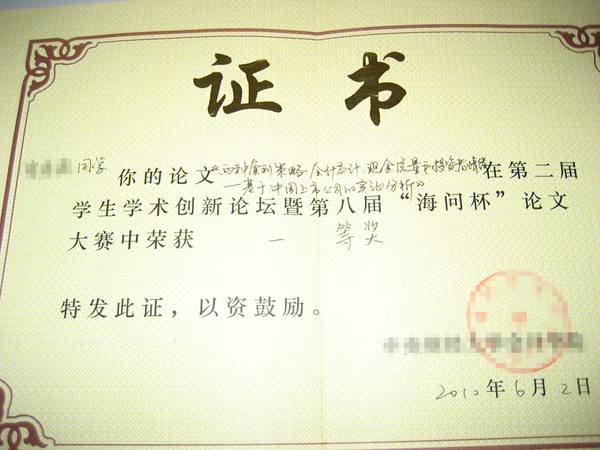 证书
同学
你的论文“ 策略、会计应计、现金流量和投资者情绪在第二届
—基于中国上市公司的实证分析》
学生学术创新论坛暨第八届“海问杯”论文
大赛中荣获 一 等奖
特发此证，以资鼓励。
2010年6月2日